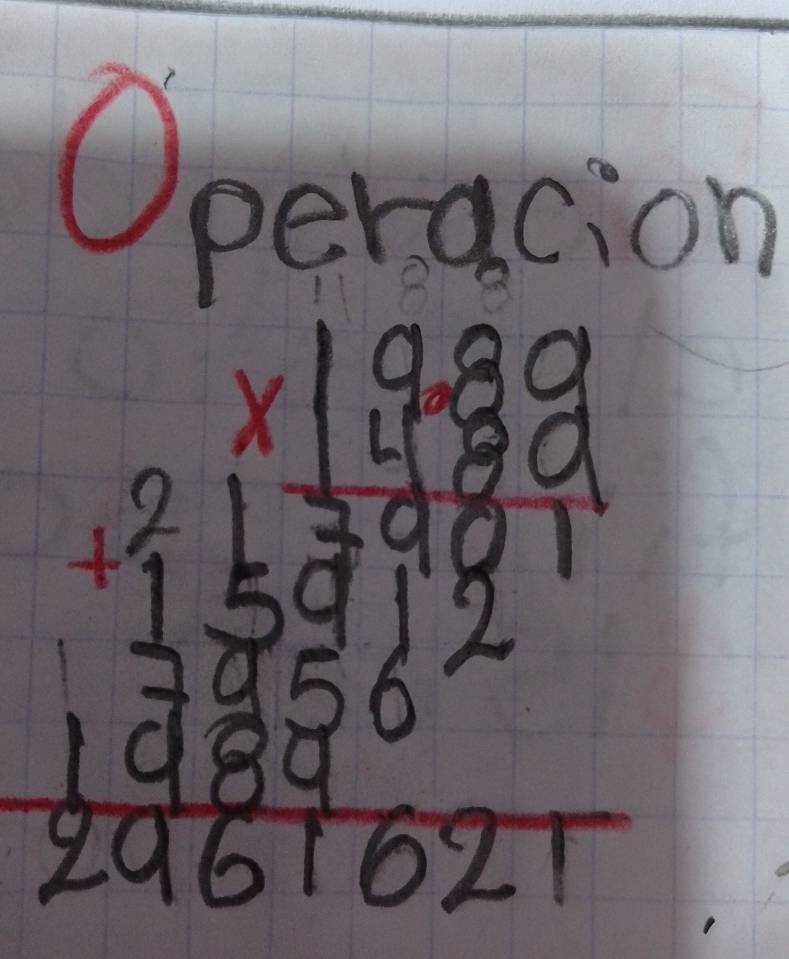 Operacion
11 8 8
1 9 8 9
x 1 4 8 9
+ 2 1 7 9 0 1
1 5 9 1 2
1 7 9 5 6
1 9 8 9
2 9 6 1 6 2 1